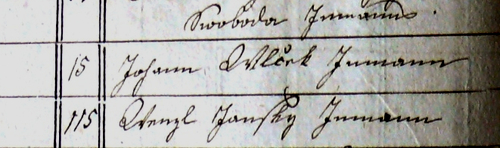 Swoboda Inmann
15 Johann Wlček Inmann
115 Wenzl Janský Inmann